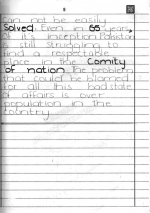 can not be easily
Solved. Even in 65 years,
of it's inception Pakistan
is still struggling to
find a respectable
place in the Comity
of nation. The problem
that could be blamed
for all this bad state
of affairs is over
population in the
country.